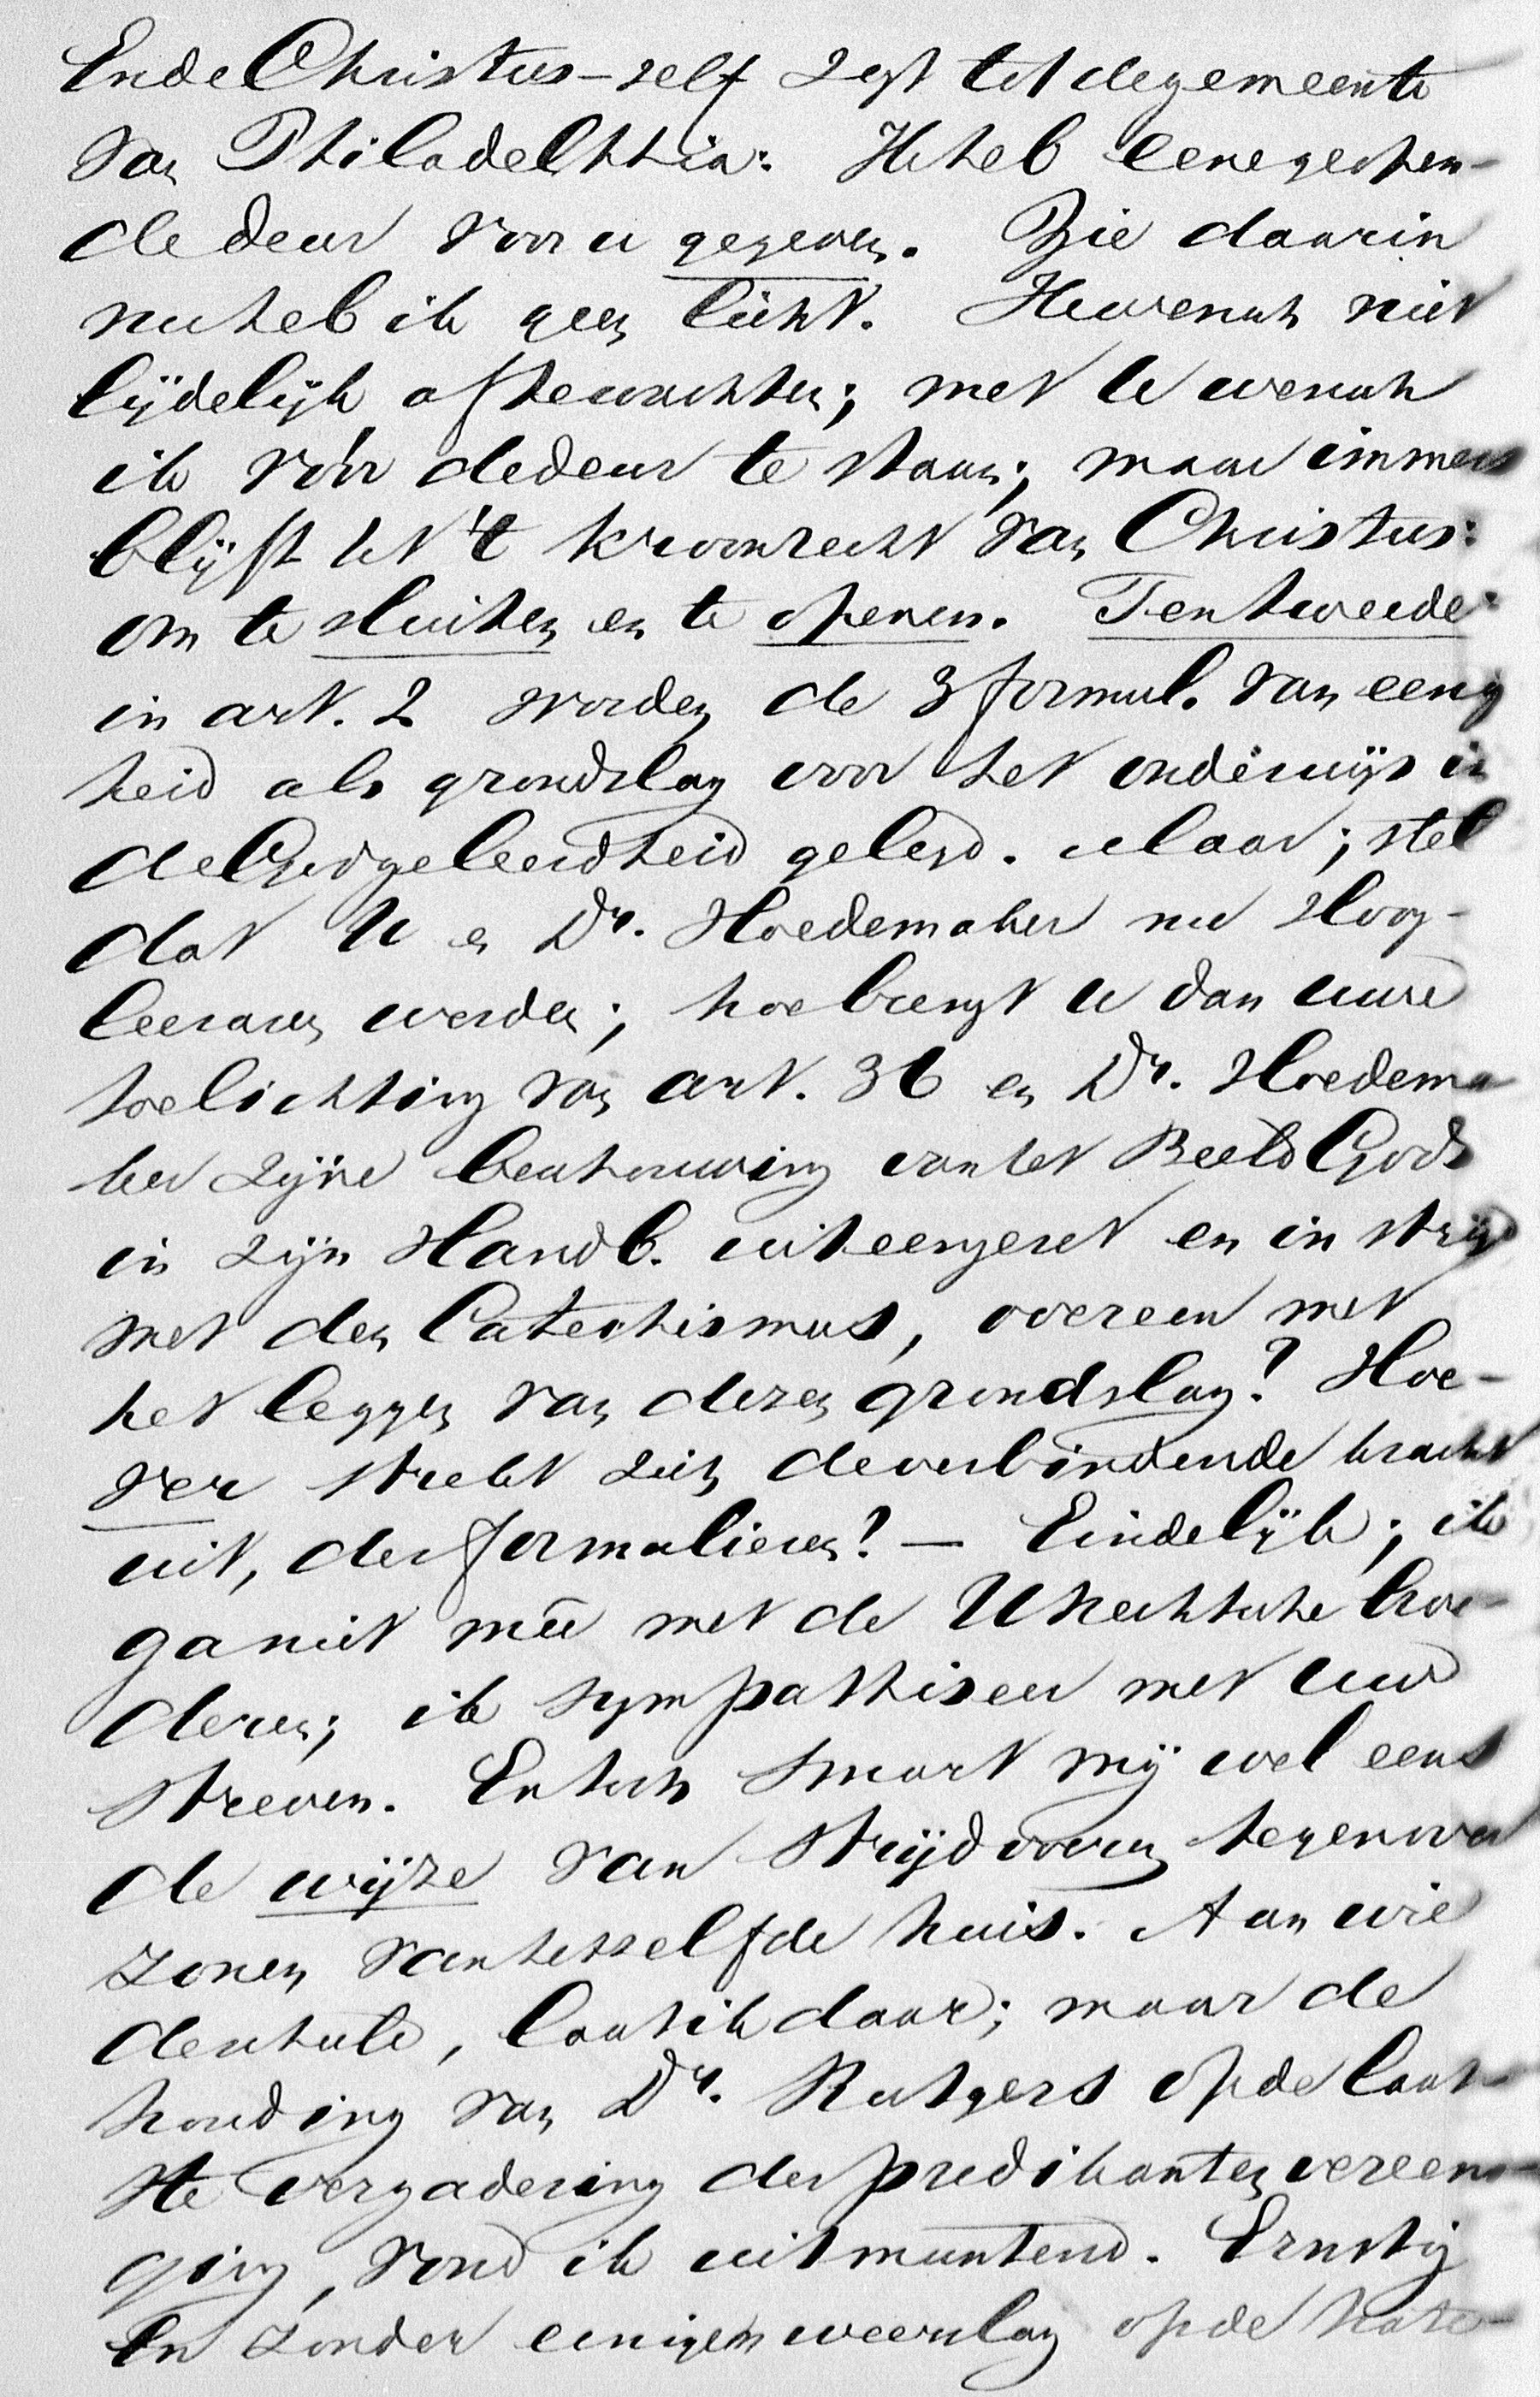 En de Christus-zelf zegt tot de gemeente
van Philadelphia: Ik heb eene geopen-
de deur voor u gegeven. Zie daarin
nu heb ik geen licht. Ik wensch niet
lijdelijk af te wachten; met U wensch
ik vóór de deur te staan; maar immers
blijft het 't kroonrecht van Christus:
om te sluiten en te openen. Ten tweede:
in art. 2 worden de 3 formul. van eenig
heid als grondslag voor het onderwijs in
de Godgeleerdheid gelegd. Maar; stel
dat U en Dr. Hoedemaker nu Hoog-
leeraren werden; hoe brengt U dan uwe
toelichting van art. 36 en Dr. Hoedema
ker zijne beschouwing van het Beeld Gods
in zijn Handb. uiteengezet en in strijd
met den Catechismus, overeen met
het leggen van dezen grondslag? Hoe-
ver strekt zich de verbindende kracht
uit, der formulieren? — Eindelijk; ik
ga niet meê met de Utrechtsche broe-
deren; ik sympathiseer met uw
streven. En toch smart mij wel eens
de wijze van strijdvoeren tegenover
zonen van hetzelfde huis. Aan wie
de schuld, laat ik daar; maar de
houding van Dr. Rutgers op de laat-
ste vergadering der predikanten vereeni-
ging, vond ik uitmuntend. Ernstig
en zonder eenigen weerslag op de